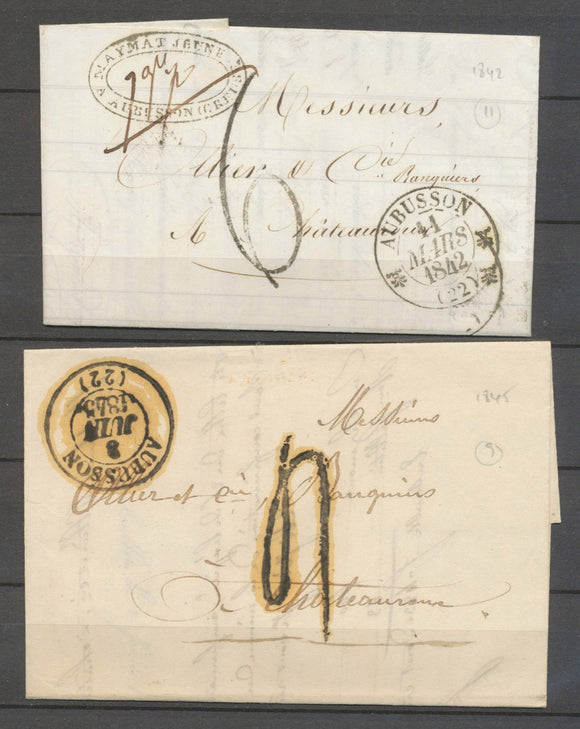 MAYMAT JEUNE
AUBUSSON (CREUSE)
1842
11
Messieurs
Ollier & Cie
Banquiers
A Châteauroux
6
AUBUSSON
11
MARS
1842
(22)
AUBUSSON
8
JUIN
1845
(22)
1845
9
Messieurs
Ollier et cie, Banquiers
De Chateauroux